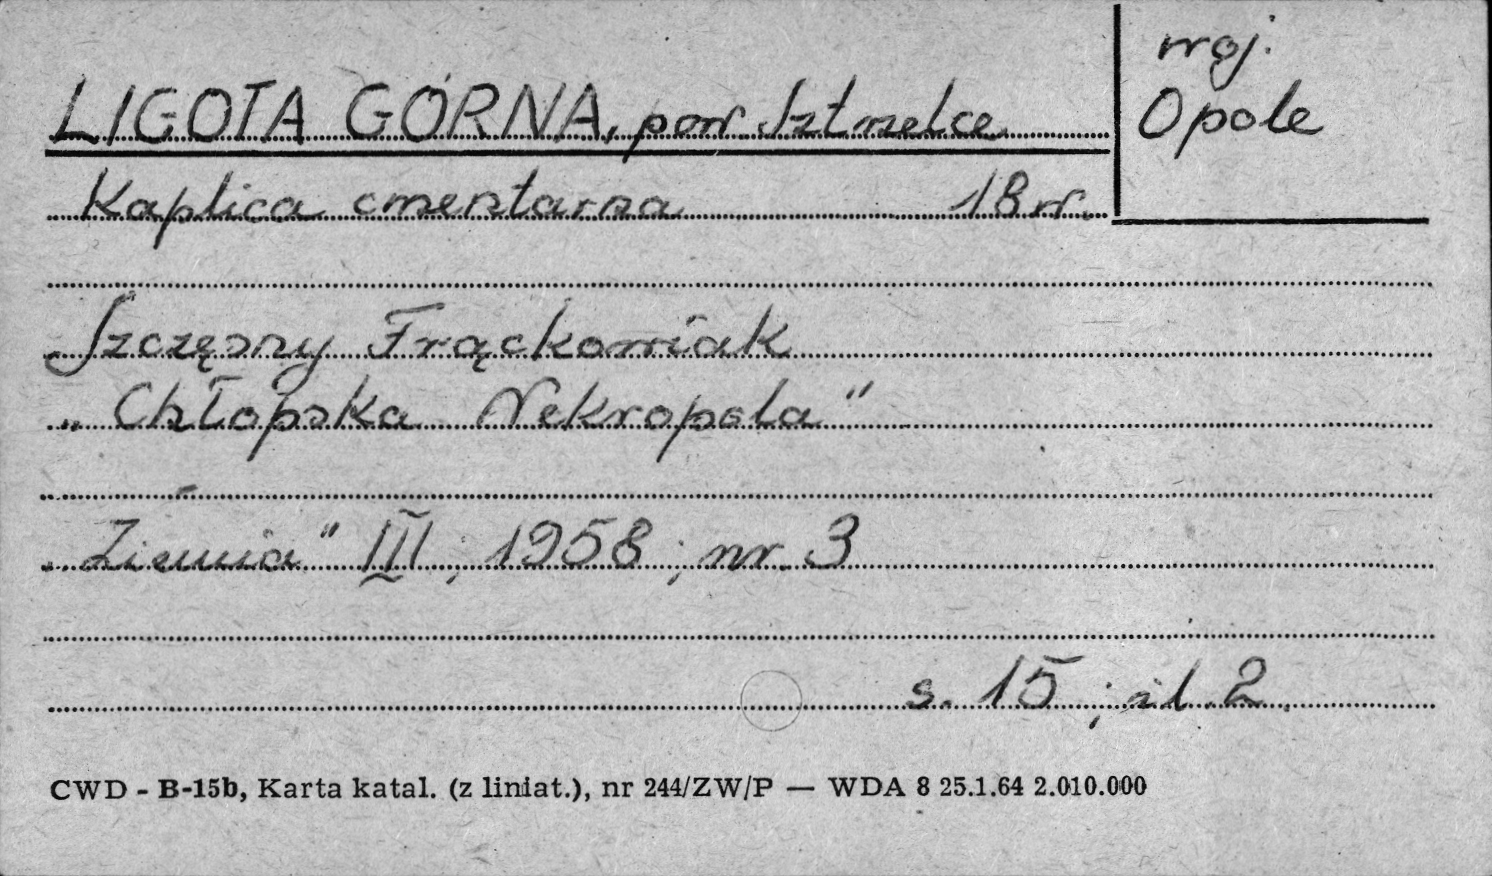 woj.
LIGOTA GÓRNA, pow. Sztrzelce
Opole
Kaplica cmentarna 18 w.
Szczęsny Frąckowiak
„Chłopska Nekropola"
„Ziemia" III; 1958; nr. 3
s. 15; il. 2
CWD - B-15b, Karta katal. (z liniat.), nr 244/ZW/P — WDA 8 25.1.64 2.010.000